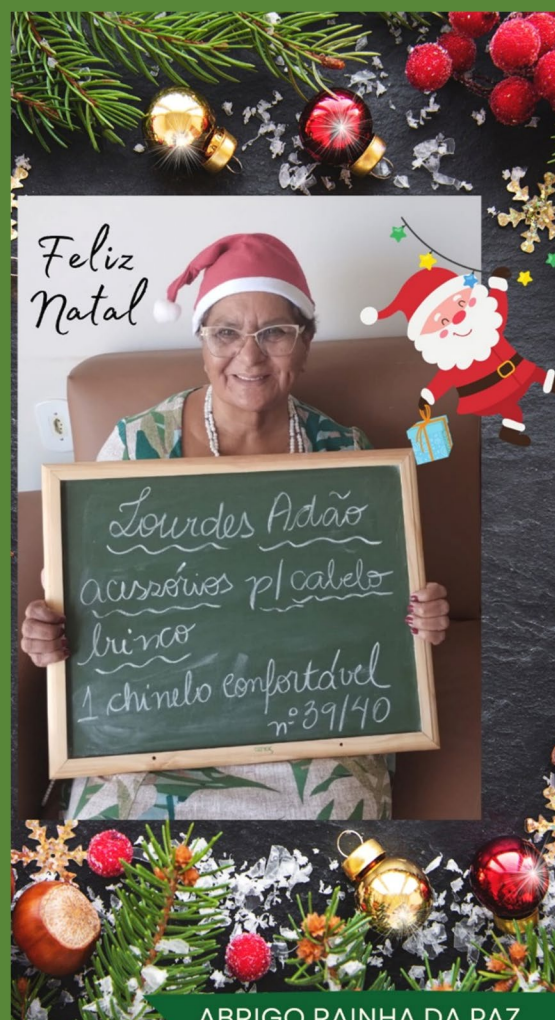 Feliz
Natal
Lourdes Adão
acessórios p/ cabelo
brinco
1 chinelo confortável
nº 39/40
ABRIGO RAINHA DA PAZ